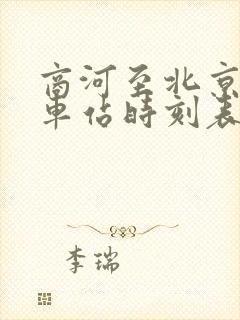 商河至北京
車佔時刻表
李瑞